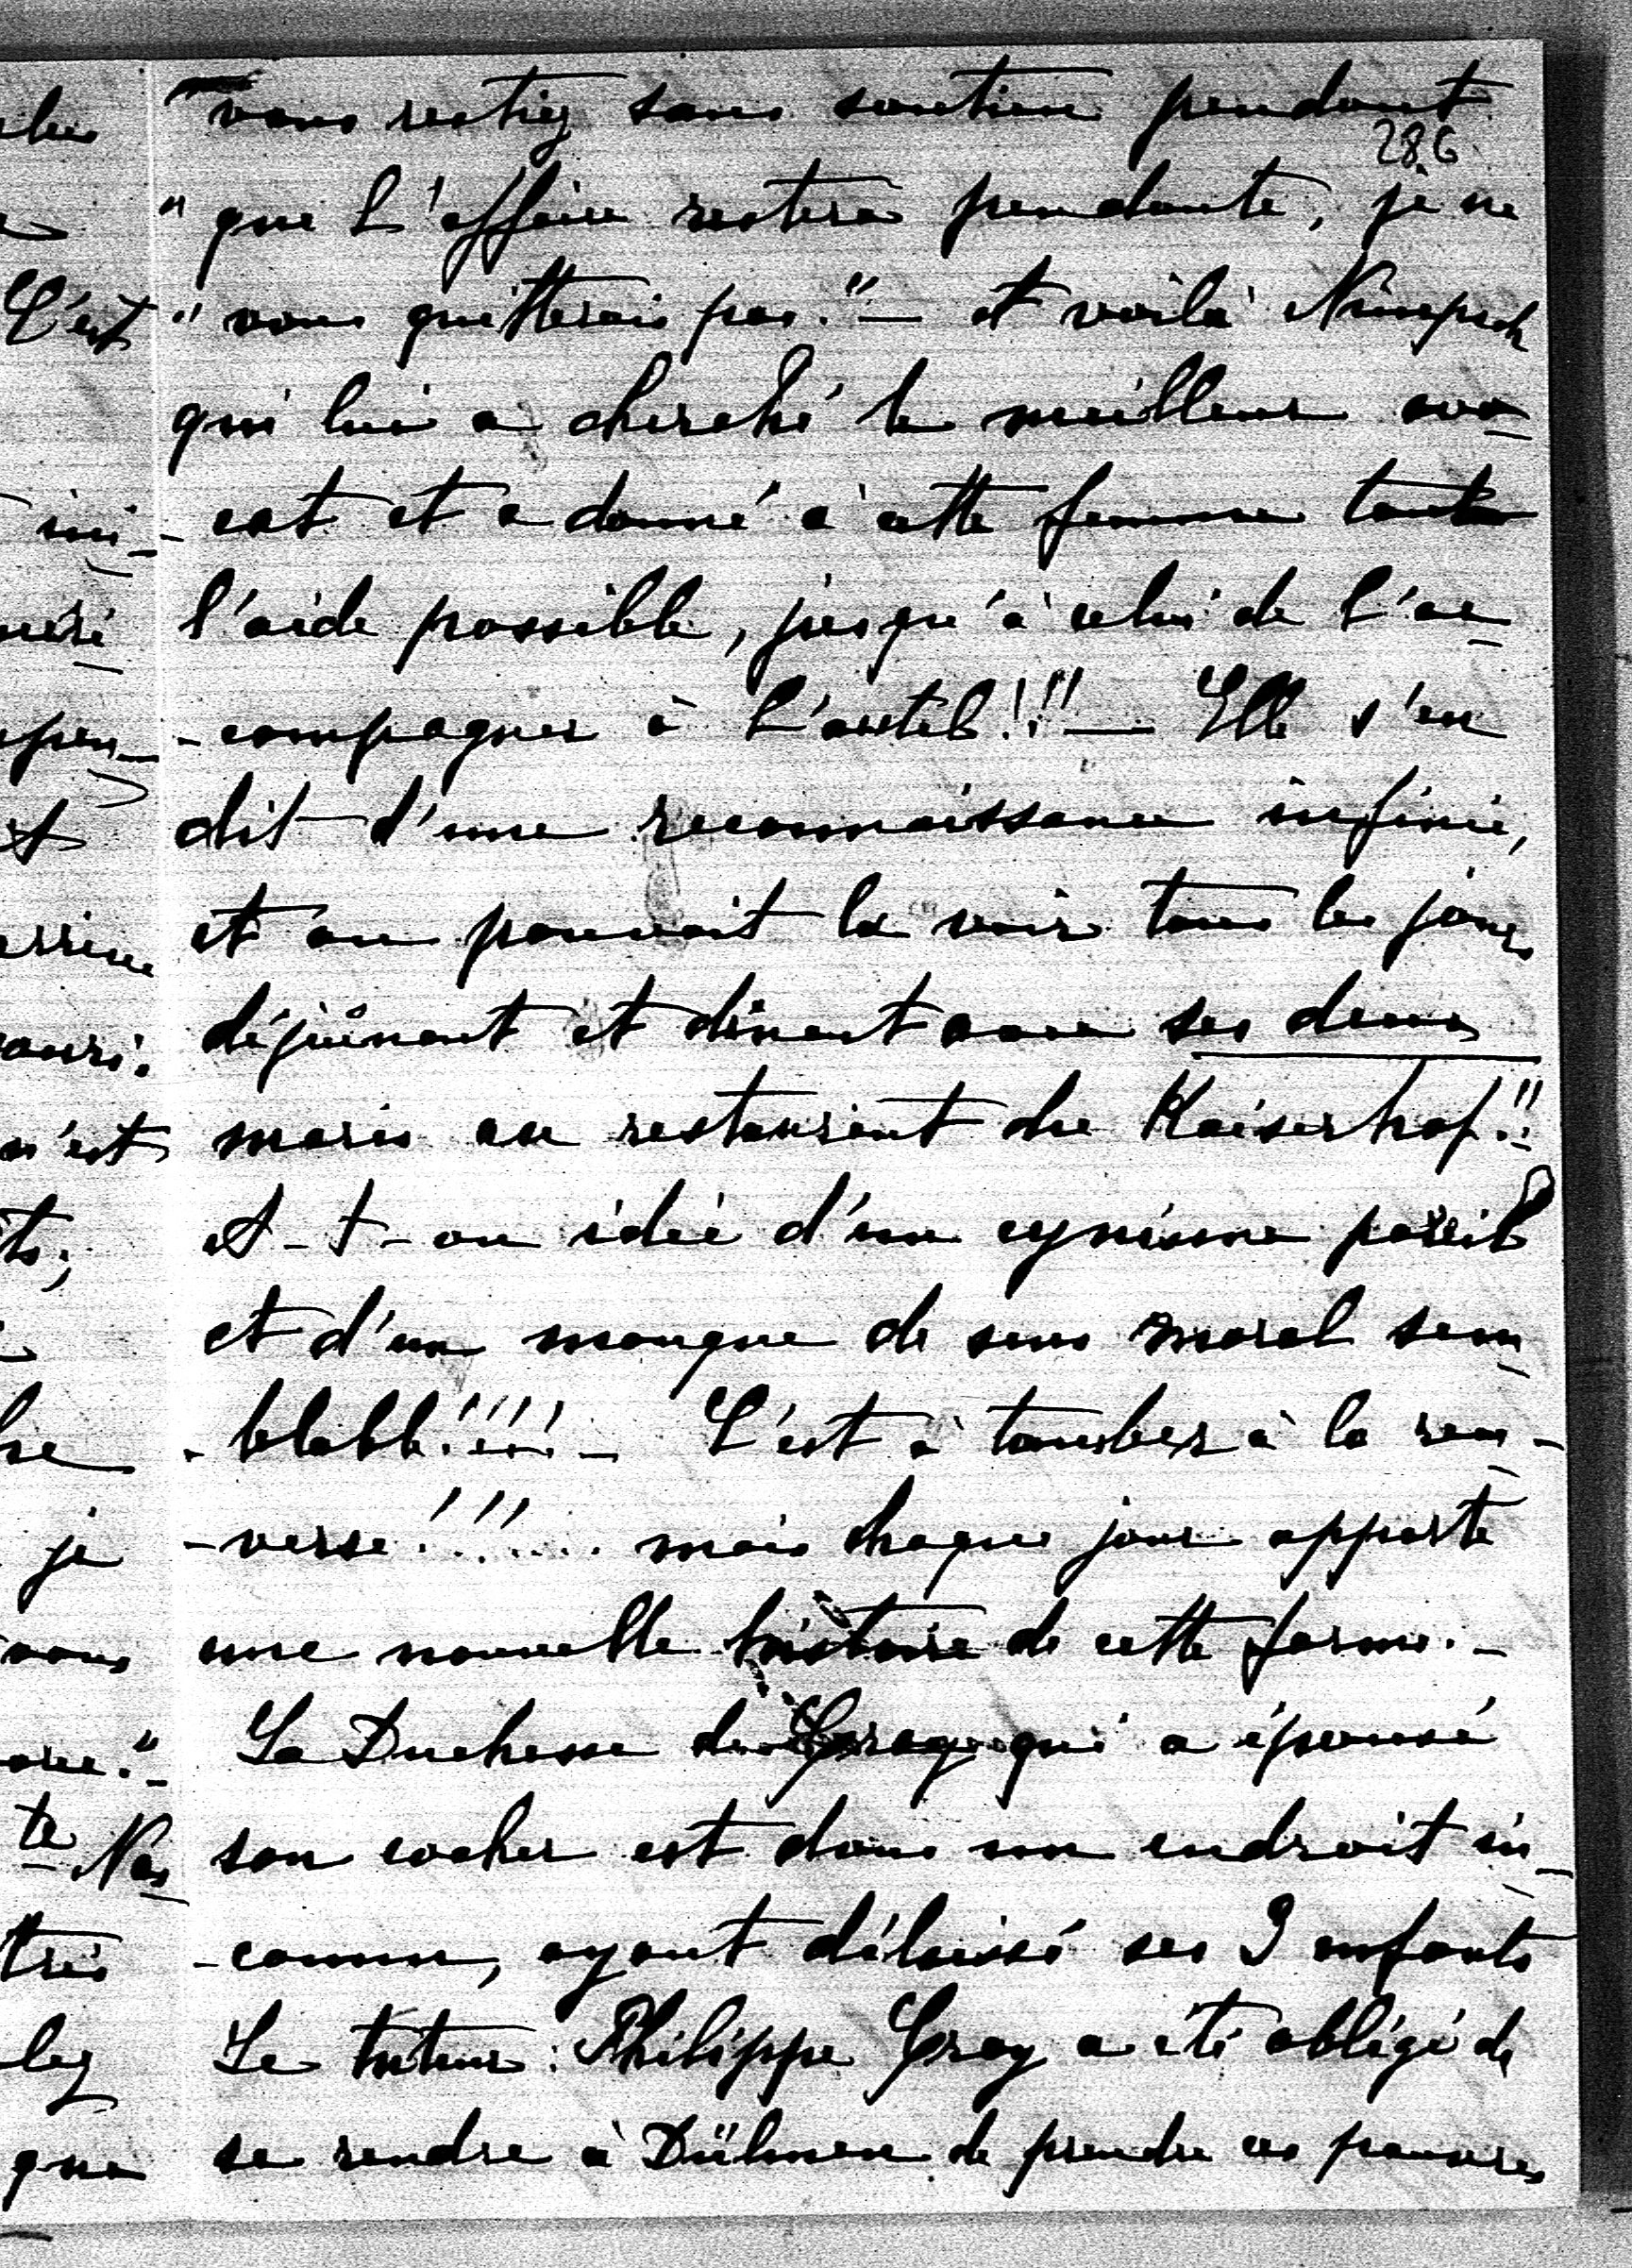 " vous restiez sans soutien pendant
286
" que l'affaire restera pendante, je ne
" vous quitterais pas." — et voilà Nimpsch
qui lui a cherché le meilleur avo
- cat et a donné à cette femme toute
l'aide possible, jusqu'à celui de l'ac
- compagner à l'autel!!! — Elle s'en
dit d'une reconnaissance infinie,
et on pouvait la voir tous les jours
déjeûnant et dînant avec ses deux
maris au restaurant du Kaiserhof!!
A-t-on idée d'un cynisme pareil
et d'un manque de sens moral sem
- blable!!!! — C'est à tomber à la ren-
- verse!!!.... mais chaque jour apporte
une nouvelle histoire de cette forme. —
La Duchesse de Croy qui a épousé
son cocher est dans un endroit in-
- connu, ayant délaissé ses 3 enfants
Le tuteur: Philippe Croy a été obligé de
se rendre à Dülmen de prendre ces pauvres